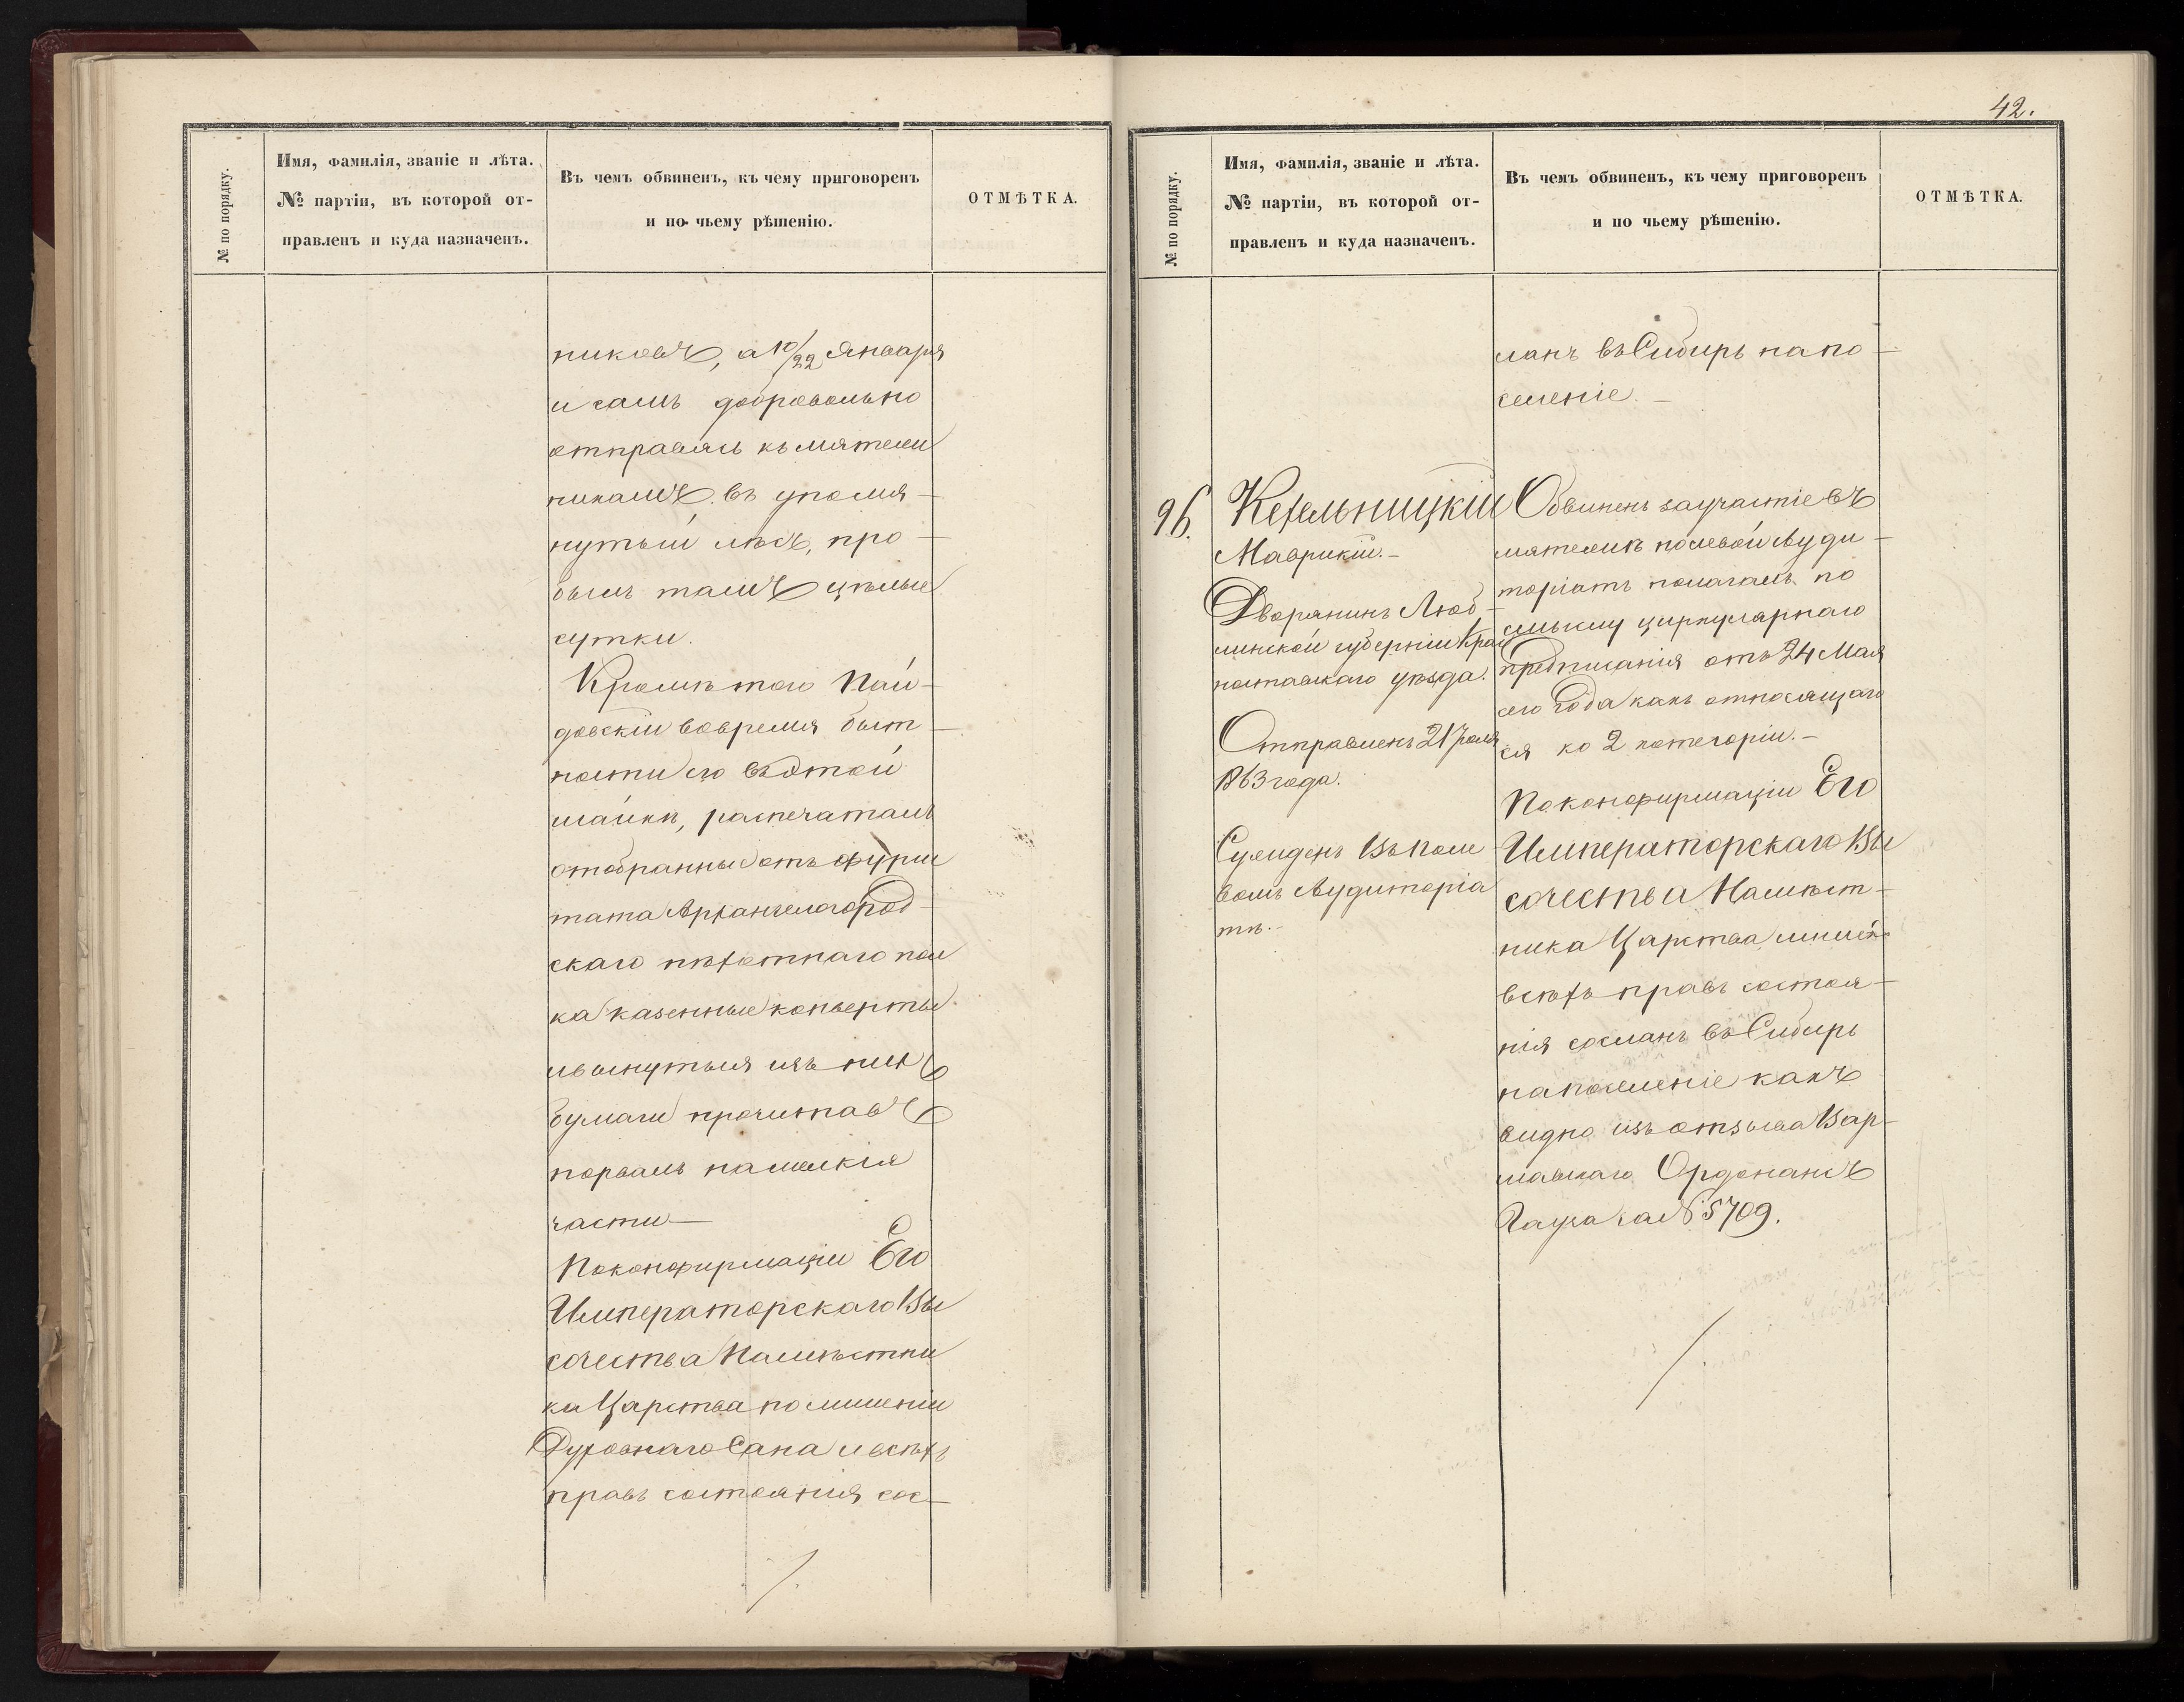 № по порядку.
Имя, фамилія, званіе и лѣта.
№ партіи, въ которой от-
правленъ и куда назначенъ.
Въ чемъ обвиненъ, къ чему приговоренъ
и по чьему рѣшенію.
ОТМѢТКА.
никовъ, а 10/22 Января
и самъ добровольно
отправясь къ мятеж
никамъ въ упомя-
нутый лѣсъ, про-
былъ тамъ цѣлые
сутки.
Кромѣ того Пай-
довскій во время быт-
ности его въ этой
шайкѣ, распечаталъ
отобранные отъ фурш
тата Архангелогород-
скаго пѣхотнаго пол
ка казенные конверты
и вынутыя изъ нихъ
бумаги прочитавъ
порвалъ на мелкія
части—
По конфирмаціи Его
Императорскаго Вы
сочества Намѣстни
ка Царства по лишеніи
Духовнаго Сана и всѣхъ
правъ состоянія сос-
42.
№ по порядку.
Имя, фамилія, званіе и лѣта.
№ партіи, въ которой от-
правленъ и куда назначенъ.
Въ чемъ обвиненъ, къ чему приговоренъ
и по чьему рѣшенію.
ОТМѢТКА.
ланъ въ Сибирь на по-
селеніе.—
96.
Кехельницкій
Маврикій.—
Дворянинъ Люб-
линской губерніи Крас
ноставскаго уѣзда.
Отправленъ 21 Іюля
1863 года.
Сужденъ Въ Поле
вомъ Аудиторіа
тѣ.—
Обвиненъ за участіе въ
мятежѣ полевой Ауди-
торіатъ полагалъ по
смыслу циркулярнаго
предписанія отъ 24 Мая
сего Года какъ относящаго
ся ко 2 категоріи.—
По конфирмаціи Его
Императорскаго Вы
сочества Намѣст-
ника Царства лишенъ
всѣхъ правъ состоя-
нія сосланъ въ Сибирь
на поселеніе какъ
видно изъ отзыва Вар-
шавскаго Ордонансъ
Гауза за № 5709.